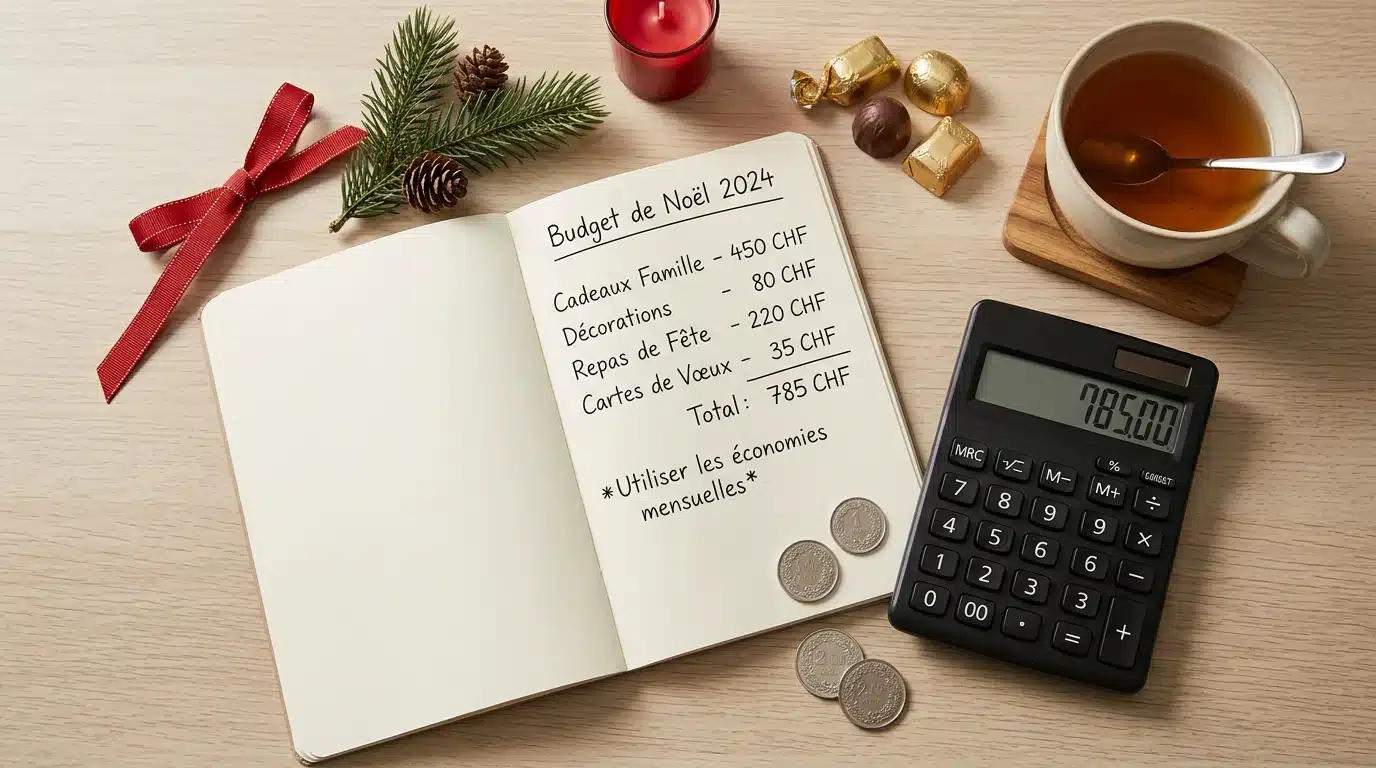 Budget de Noël 2024
Cadeaux Famille - 450 CHF
Décorations - 80 CHF
Repas de Fête - 220 CHF
Cartes de Vœux - 35 CHF
Total: 785 CHF
*Utiliser les économies
mensuelles*
785.00
MRC √ M- % 
7 8 9 M+ ÷
4 5 6 9 ×
1 2 3 6 −
0 00 . 3 +
=
1
2
2